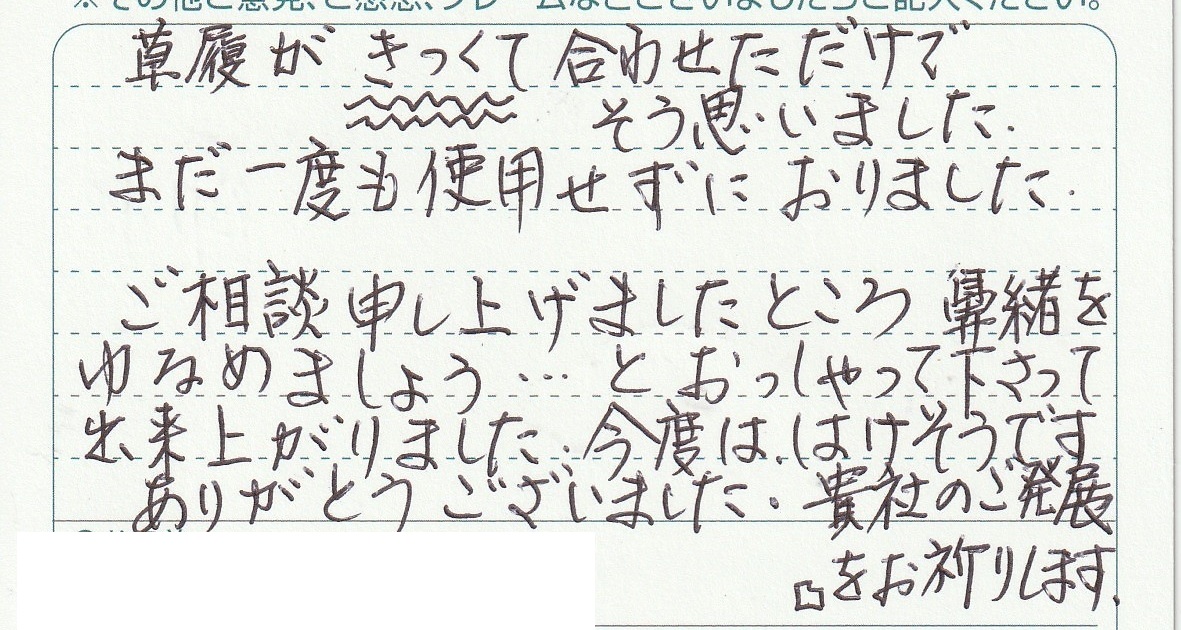 ※その他ご意見、ご感想、クレームなどございましたらご記入ください。
草履が きっくて 合わせただけで
そう思いました.
まだ一度も使用せずに おりました.
ご相談申し上げましたところ 鼻緒を
ゆなめましょう…と おっしゃって下さって
出来上がりました. 今度は、はけそうです
ありがとうございました. 貴社のご発展
をお祈りします.